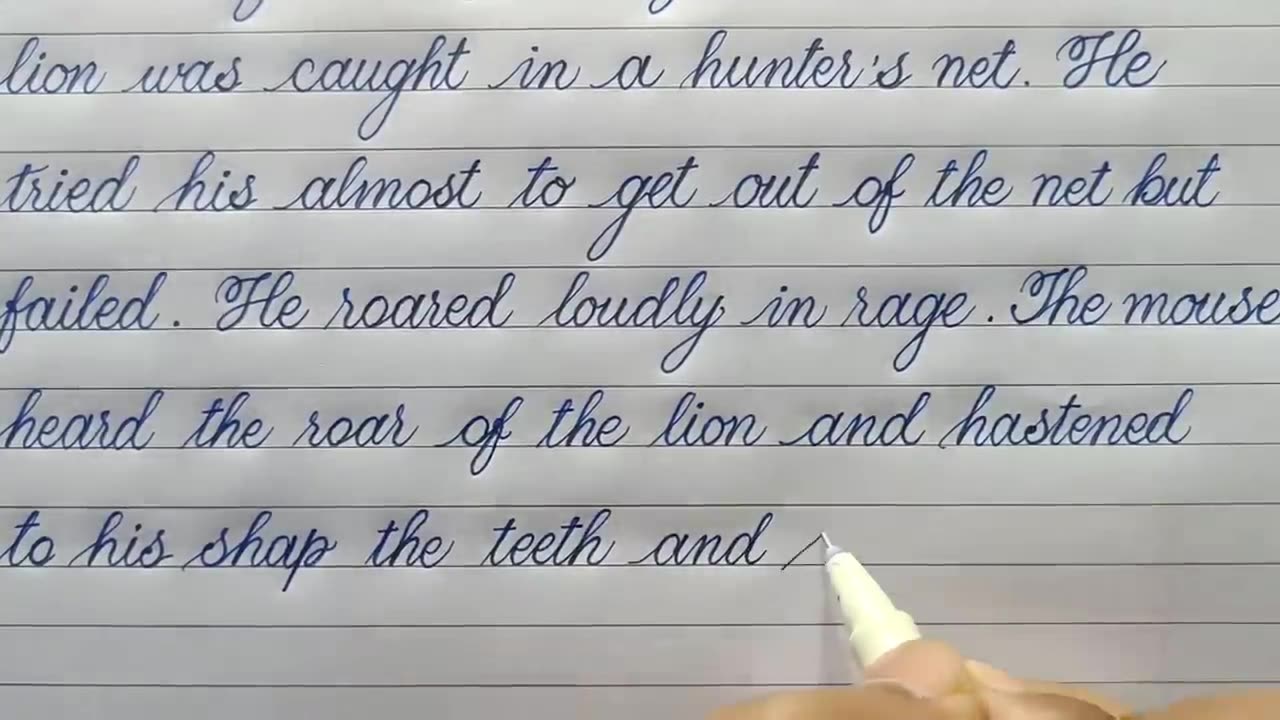 lion was caught in a hunter's net. He
tried his almost to get out of the net but
failed. He roared loudly in rage. The mouse
heard the roar of the lion and hastened
to his shap the teeth and